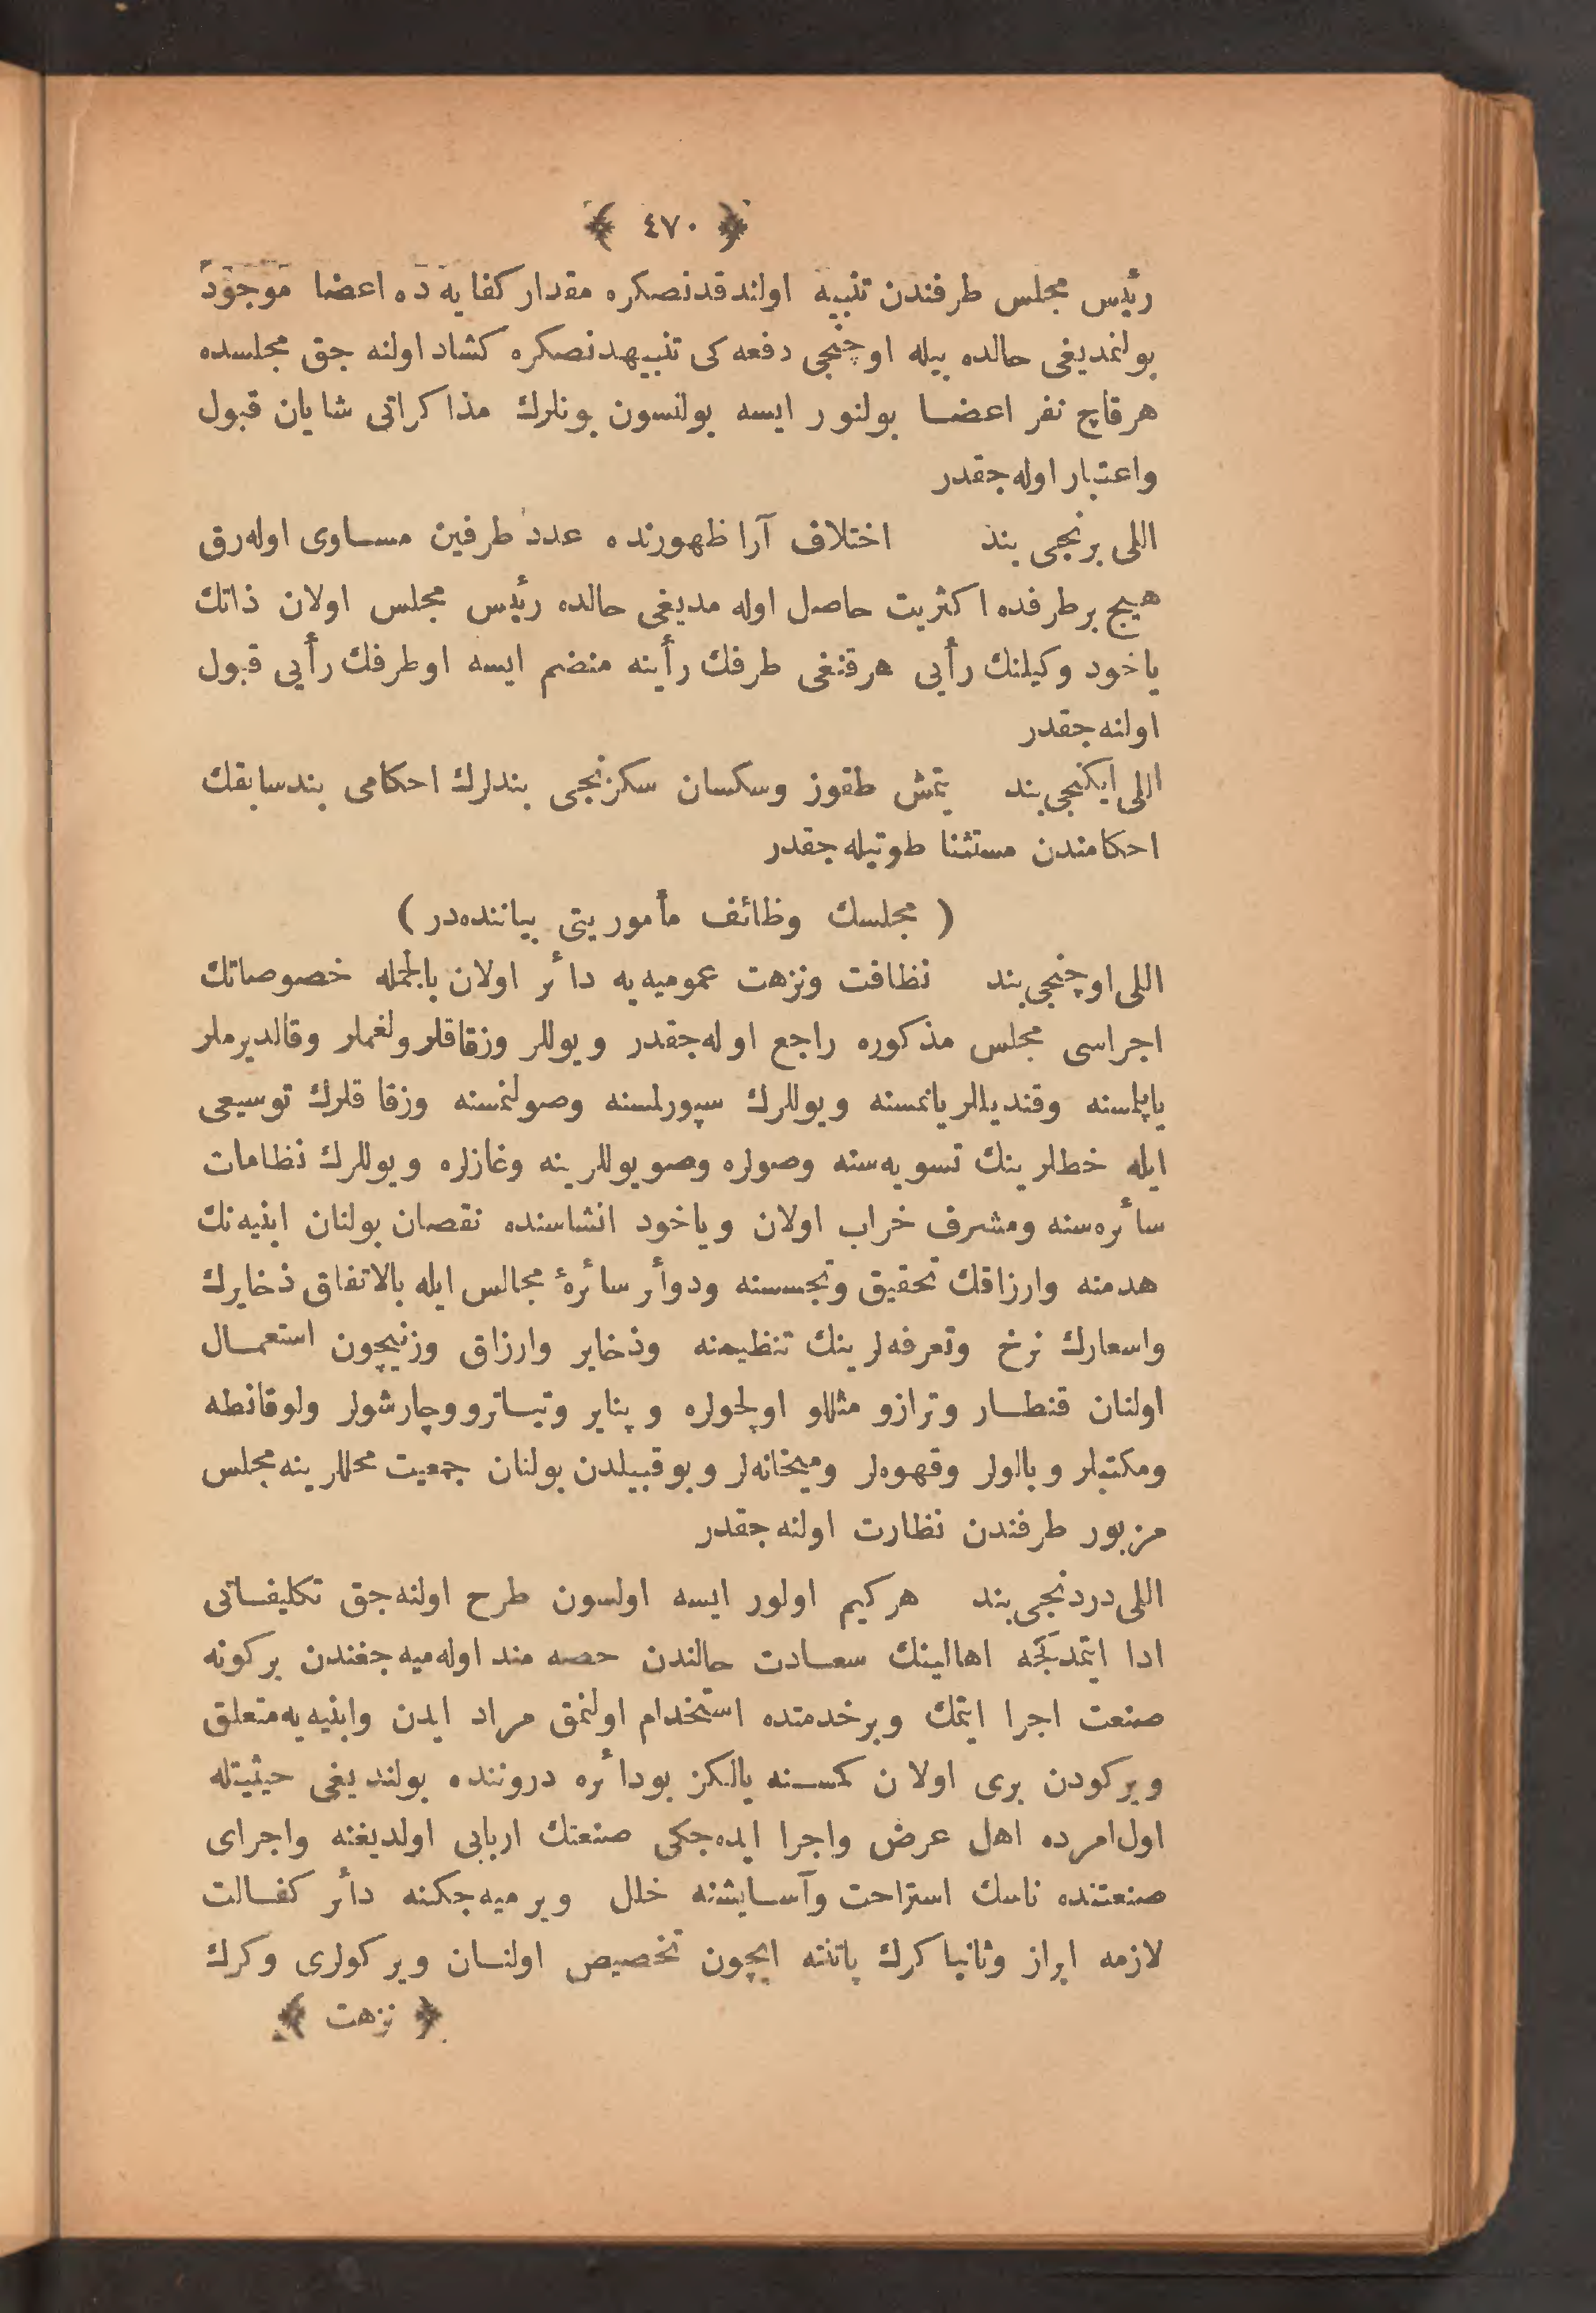 ﴿ ٤٧٠ ﴾
رئيس مجلس طرفندن تنبيه اولندقدنصكره مقدار كفايه ده اعضا موجود
بولنمديغى حالده بيله اوچنجى دفعه كى تنبيهدنصكره كشاد اولنه جق مجلسده
هرقاچ نفر اعضا بولنور ايسه بولنسون بونلرك مذاكراتى شايان قبول
واعتبار اوله جقدر
اللى برنجى بند اختلاف آرا ظهورنده عدد طرفين مساوى اوله رق
هيچ برطرفده اكثريت حاصل اوله مديغى حالده رئيس مجلس اولان ذاتك
ياخود وكيلنك رأيى هرقنغى طرفك رأينه منضم ايسه اوطرفك رأيى قبول
اولنه جقدر
اللى ايكنجى بند يتمش طقوز وسكسان سكزنجى بندلرك احكامى بندسابقك
احكامندن مستثنا طوتيله جقدر
( مجلسك وظائف مأموريتى بياننده در )
اللى اوچنجى بند نظافت ونزهت عموميه يه دائر اولان بالجمله خصوصاتك
اجراسى مجلس مذكوره راجع اوله جقدر ويوللر وزقاقلر ولغملر وقالديرملر
ياپلمسنه وقنديللر يانمسنه ويوللرك سپورلمسنه وصولنمسنه وزقاقلرك توسيعى
ايله خطلرينك تسويه سنه وصولره وصويوللرينه وغازلره ويوللرك نظامات
سائره سنه ومشرف خراب اولان وياخود انشاسنده نقصان بولنان ابنيه نك
هدمنه وارزاقك تحقيق وتجسسنه ودوائر سائرۀ مجالس ايله بالاتفاق ذخايرك
واسعارك نرخ وتعرفه لرينك تنظيمنه وذخاير وارزاق وزنيچون استعمال
اولنان قنطار وترازو مثللو اولچولره وپناير وتياترو وچارشولر ولوقانطه
ومكتبلر وبالولر وقهوه لر وميخانه لر وبوقبيلدن بولنان جمعيت محللرينه مجلس
مزبور طرفندن نظارت اولنه جقدر
اللى دردنجى بند هركيم اولور ايسه اولسون طرح اولنه جق تكليفاتى
ادا ايتمدكجه اهالينك سعادت حالندن حصه مند اوله ميه جغندن بركونه
صنعت اجرا ايتمك وبرخدمتده استخدام اولنمق مراد ايدن وابنيه يه متعلق
ويركودن برى اولان كمسنه يالكز بودائره دروننده بولنديغى حيثيتله
اول امرده اهل عرض واجرا ايده جكى صنعتك اربابى اولديغنه واجراى
صنعتنده ناسك استراحت وآسايشنه خلل ويرميه جكنه دائر كفالت
لازمه ابراز وثانيا كرك پاتنته ايچون تخصيص اولنان ويركولرى وكرك
﴿ نزهت ﴾